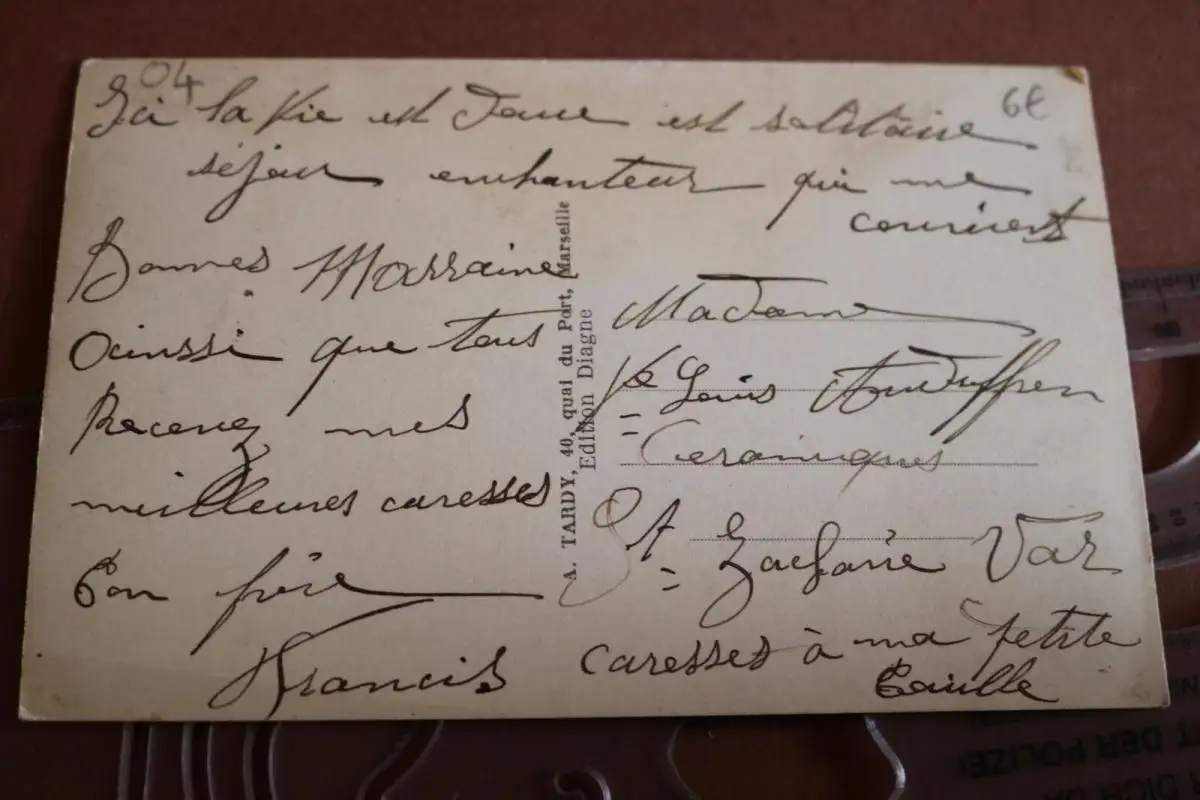 04
6€
Ici la Vie est Douce est solitaire
séjour enchanteur qui me
convient
Bonnes Marraine
ainssi que tous
Recevez mes
meilleures caresses
Ton frère
Francis
A. TARDY, 40, quai du Port, Marseille
Edition Diagne
Madame
Ve Louis
Ceramiques
St Zacharie Var
caresses à ma petite